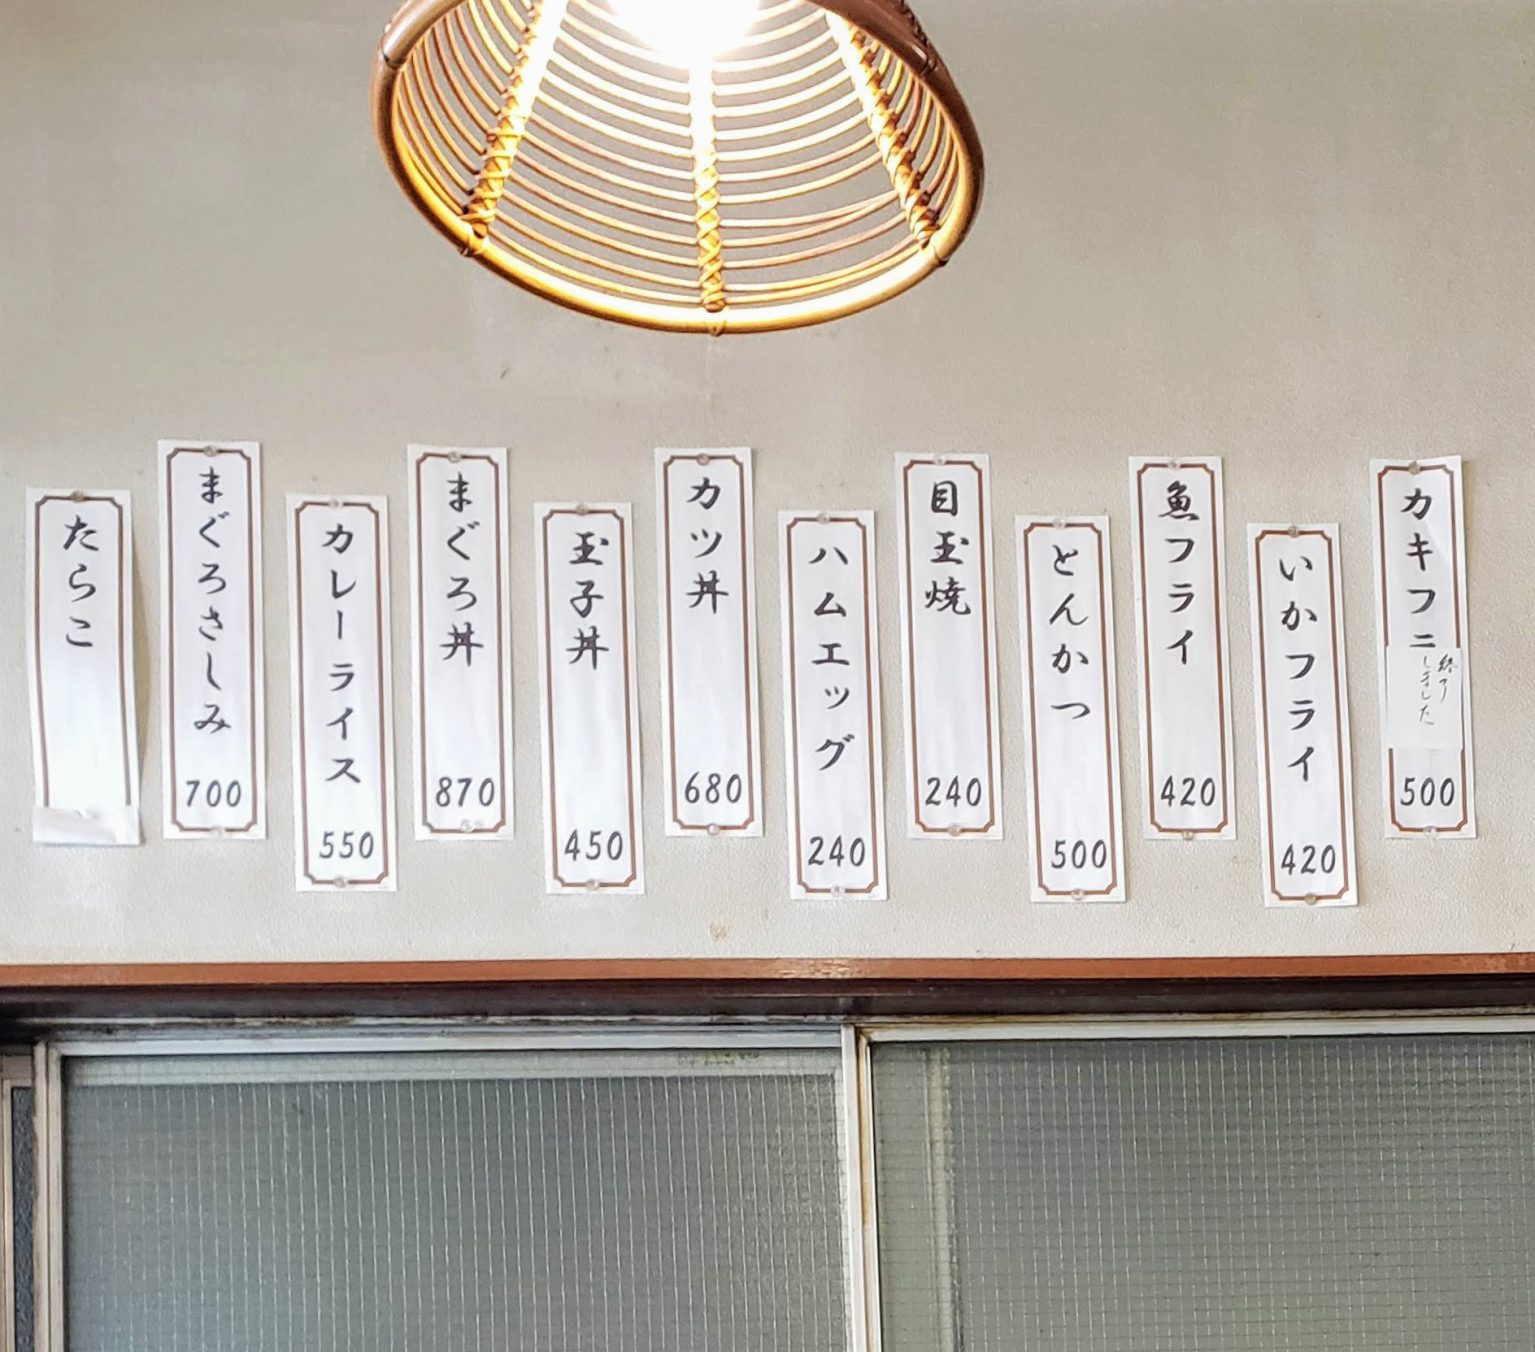 カキフラ
終了
しました
500
いかフライ
420
魚フライ
420
とんかつ
500
目玉焼
240
ハムエッグ
240
カツ丼
680
玉子丼
450
まぐろ丼
870
カレーライス
550
まぐろさしみ
700
たらこ